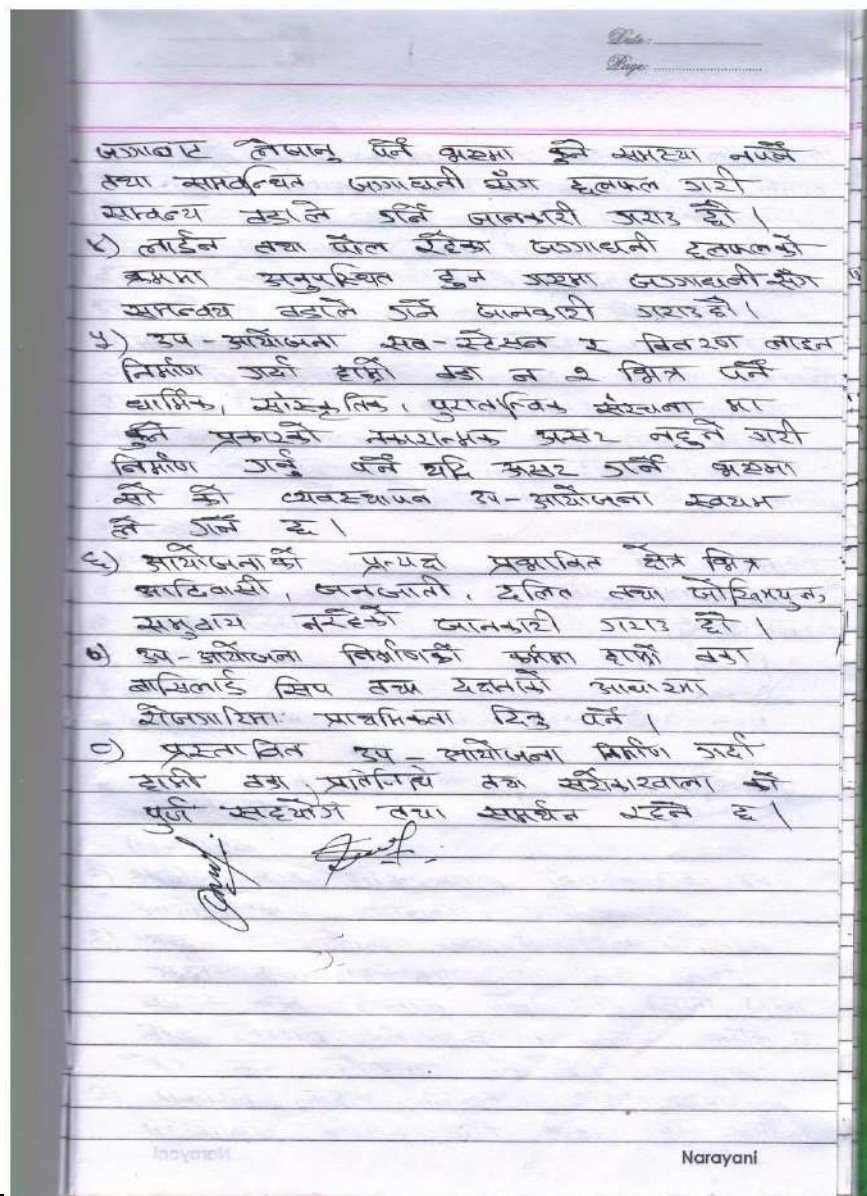 Date:
Page:
जग्गाबाट लैजानु पर्ने भएमा कुनै समस्या नपर्ने
तथा सम्बन्धित जग्गाधनी सँग छलफल गरी
समन्वय वडाले गर्ने जानकारी गराउ छौ ।
४) लाईन तथा पोल रहेका जग्गाधनी छलफलको
क्रममा अनुपस्थित हुन गएमा जग्गाधनी सँग
समन्वय वडाले गर्ने जानकारी गराउ छौ ।
५) उप-आयोजना सब-स्टेसन र वितरण लाइन
निर्माण गर्दा हाम्रो वडा न २ भित्र पर्ने
धार्मिक, सांस्कृतिक, पुरातात्विक संरचना मा
कुनै प्रकारको नकारात्मक असर नहुने गरी
निर्माण गर्नु पर्ने यदि असर गर्ने भएमा
सो को व्यवस्थापन उप-आयोजना स्वयम
ले गर्ने छ ।
६) आयोजनाको प्रत्यक्ष प्रभावित क्षेत्र भित्र
आदिवासी, जनजाती, दलित तथा जोखिमयुक्त
समुदाय नरहेको जानकारी गराउ छौ ।
७) उप-आयोजना निर्माणको क्रममा हाम्रो वडा
बासिलाई सिप तथा दक्षताको आधारमा
रोजगारिमा प्राथमिकता दिनु पर्ने ।
८) प्रस्तावित उप-आयोजना निर्माण गर्दा
हाम्रो वडा प्रतिनिधि तथा सरोकारवाला को
पुर्ण सहयोग तथा समर्थन रहने छ ।
Narayani